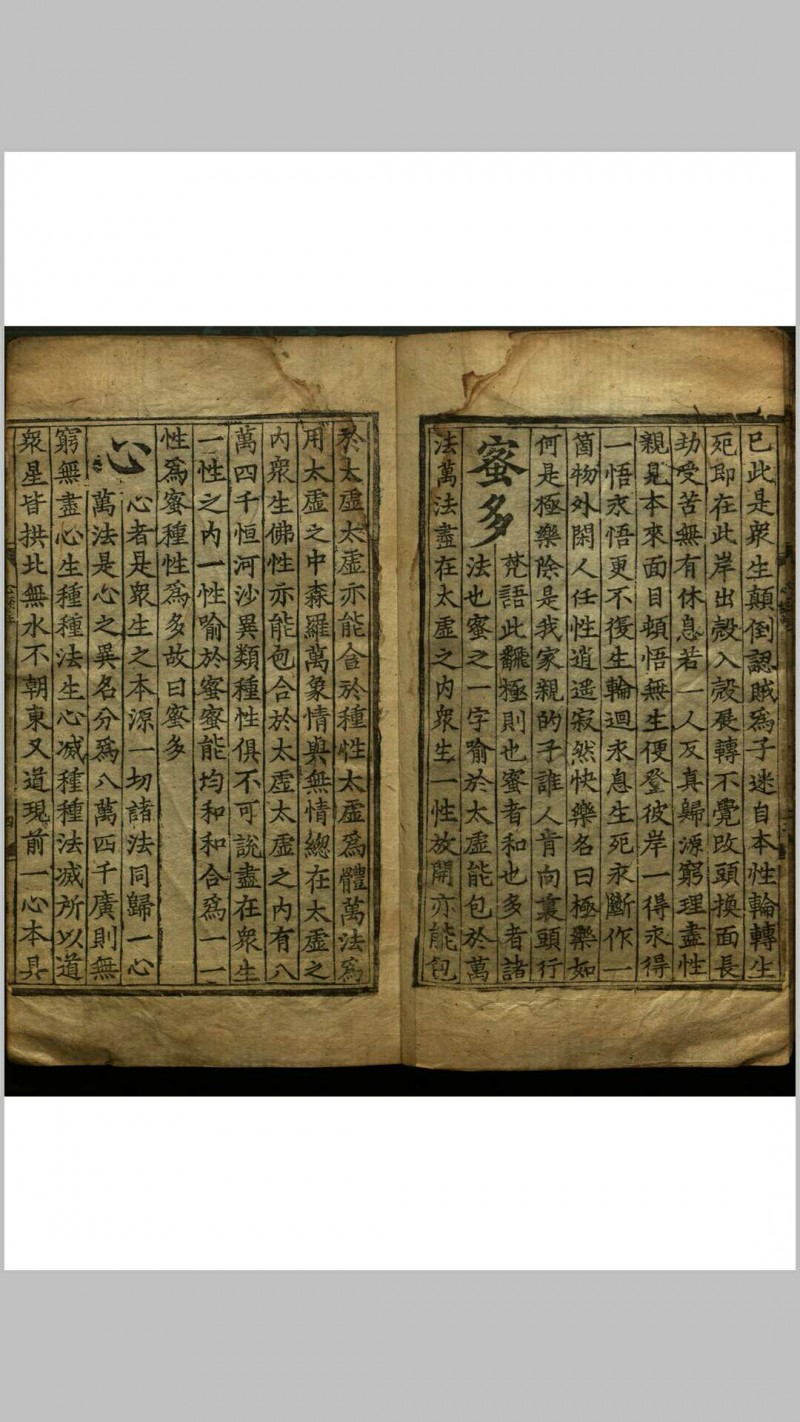 已此是衆生顛倒認賊爲子迷自本性輪轉生
死即在此岸出殼入殼展轉不覺改頭換面長
劫受苦無有休息若一人反真歸源窮理盡性
親見本來面目頓悟無生便登彼岸一得永得
一悟永悟更不復生輪迴永息生死永斷作一
箇物外閑人任性逍遥寂然快樂名曰極樂如
何是極樂除是我家親的子誰人肯向裏頭行
蜜多
梵語此飜極則也蜜者和也多者諸
法也蜜之一字喻於太虛能包於萬
法萬法盡在太虛之内衆生一性放開亦能包
於太虛太虛亦能含於種性太虛爲體萬法爲
用太虛之中森羅萬象情與無情總在太虛之
内衆生佛性亦能包合於太虛太虛之内有八
萬四千恒河沙異類種性俱不可說盡在衆生
一性之内一性喻於蜜蜜能均和和合爲一一
性爲蜜種性爲多故曰蜜多
心
心者是衆生之本源一切諸法同歸一心
萬法是心之異名分爲八萬四千廣則無
窮無盡心生種種法生心滅種種法滅所以道
衆星皆拱北無水不朝東又道現前一心本具